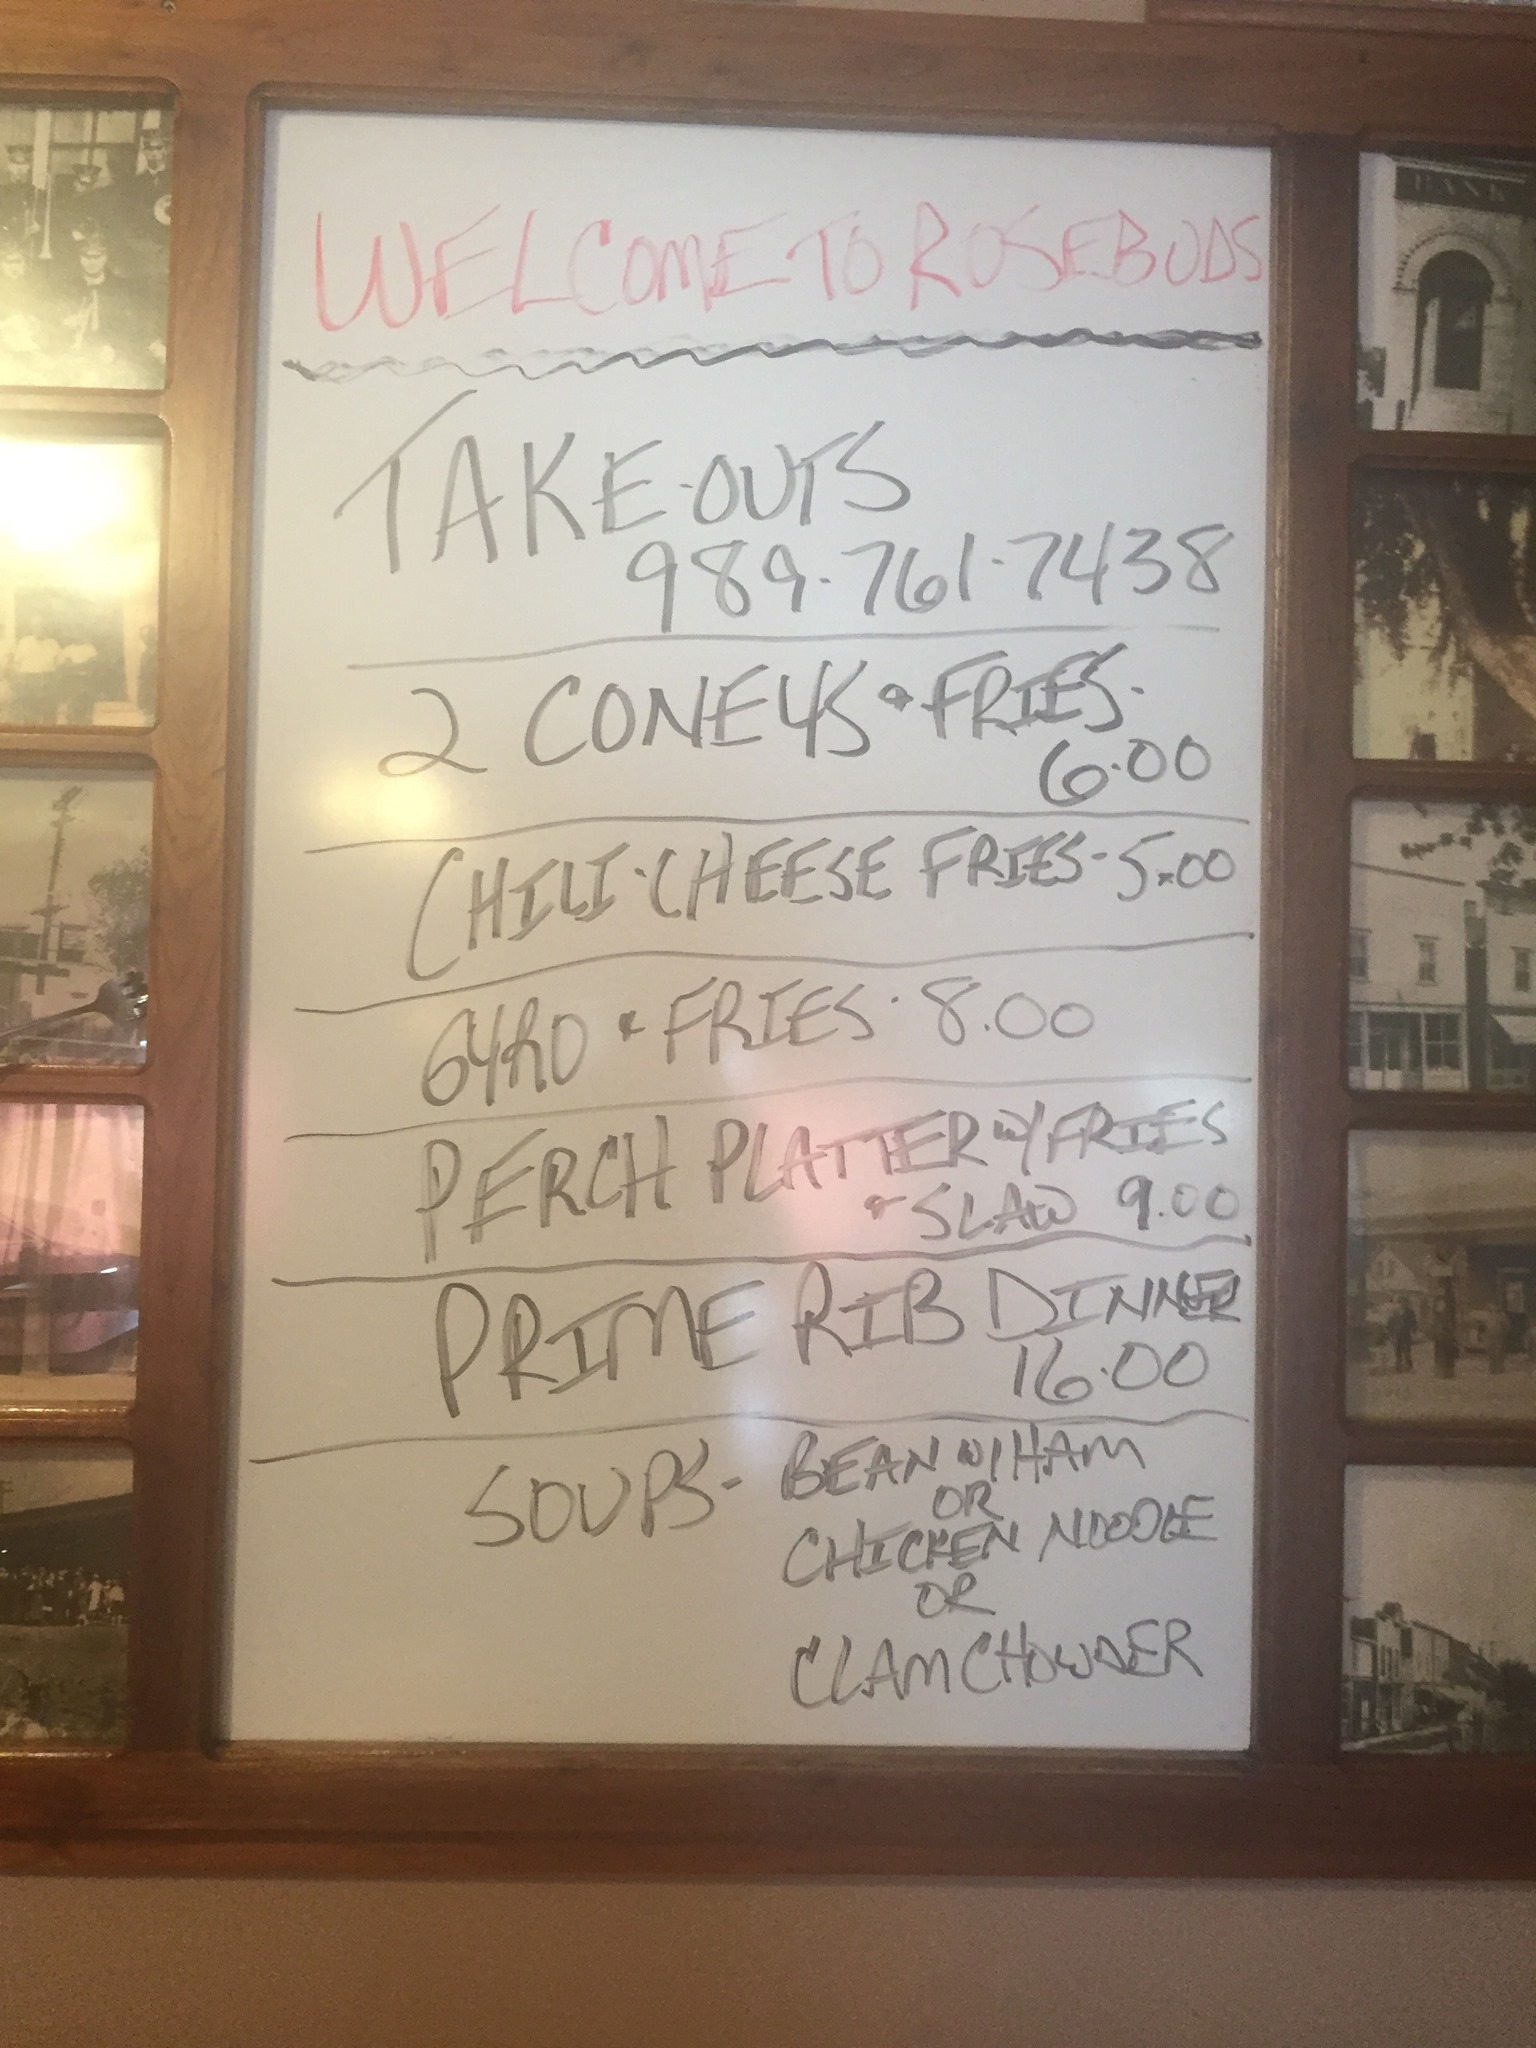 WELCOME TO ROSEBUDS
TAKE-OUTS
989-761-7438
2 CONEYS & FRIES-
6.00
CHILI-CHEESE FRIES-5.00
GYRO & FRIES-8.00
PERCH PLATTER W/FRIES
& SLAW 9.00
PRIME RIB DINNER
16.00
SOUPS- BEAN W/HAM
OR
CHICKEN NOODLE
OR
CLAM CHOWDER
BANK